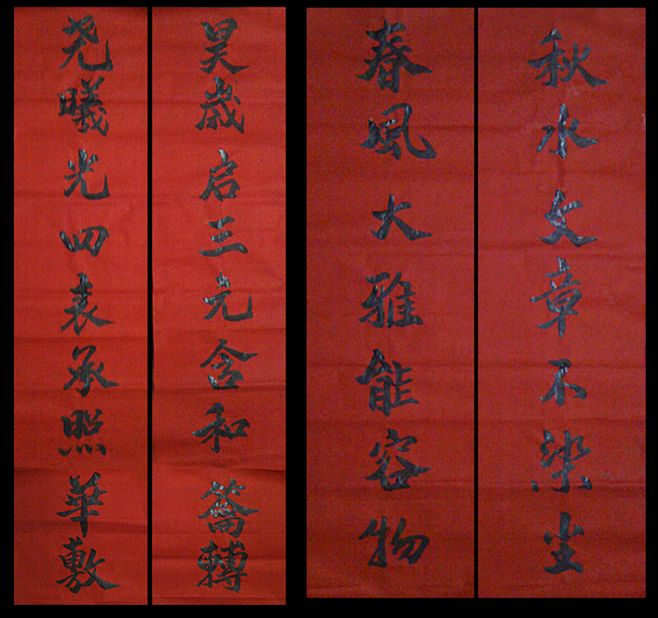 尧曦光四表承照華敷
昊歲启三元含和轉
春風大雅能容物
秋水文章不染尘